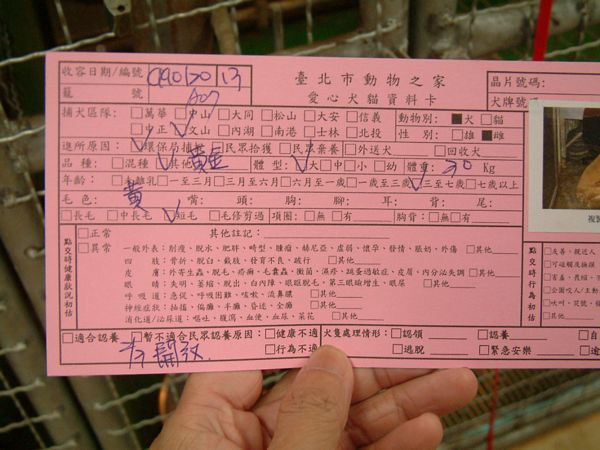 收容日期/編號 990120 13 臺北市動物之家 晶片號碼:
籠號 A07 愛心犬貓資料卡 犬牌號
捕犬區隊: □萬華 □中山 □大同 □松山 □大安 □信義 動物別: ■犬 □貓
□中正 ✓文山 □內湖 □南港 □士林 □北投 性別: □雄 ■雌
進所原因: ✓環保局捕捉 □民眾拾獲 □民眾棄養 □外送犬 □回收犬
品種: □混種 ✓其他 黃金 體型: ✓大 □中 □小 □幼 體重: 30 Kg
年齡: □未離乳 □一至三月 □三至六月 □六月至一歲 □一歲至三歲 ✓三至七歲 □七歲以上
毛色: 黃 嘴: 頭: 胸: 腳: 耳: 背: 尾:
□長毛 □中長毛 ✓短毛 □毛修剪過 項圈: □無 □有 胸背: □無 □有
點交時健康狀況初估 □正常 其他註記:
□異常 一般外表: 削瘦、脫水、肥胖、畸型、腫瘤、赫尼亞、虛弱、懷孕、發情、脹奶、外傷 □其他
四肢: 骨折、脫臼、截肢、發育不良、跛行 □其他
皮膚: 外寄生蟲、脫毛、疥癬、毛囊蟲、黴菌、濕疹、跳蚤過敏症、皮屑、內分泌失調 □其他
眼睛: 失明、萎縮、脫出、白內障、眼瞼脫毛、第三眼瞼增生、眼屎 □其他
呼吸道: 急促、呼吸困難、咳嗽、流鼻膿 □其他
神經症狀: 抽搐、偏癱、半癱、昏迷、全癱 □其他
消化道/泌尿道: 嘔吐、腹瀉、血便、血尿、菜花 □其他
點交時行為初估
□友善、親近人
□可碰觸及撫摸
□適合認養 □暫不適合民眾認養原因: □健康不適 犬隻處理情形: □認領 □認養 □自
□行為不適 □逃脫 □緊急安樂